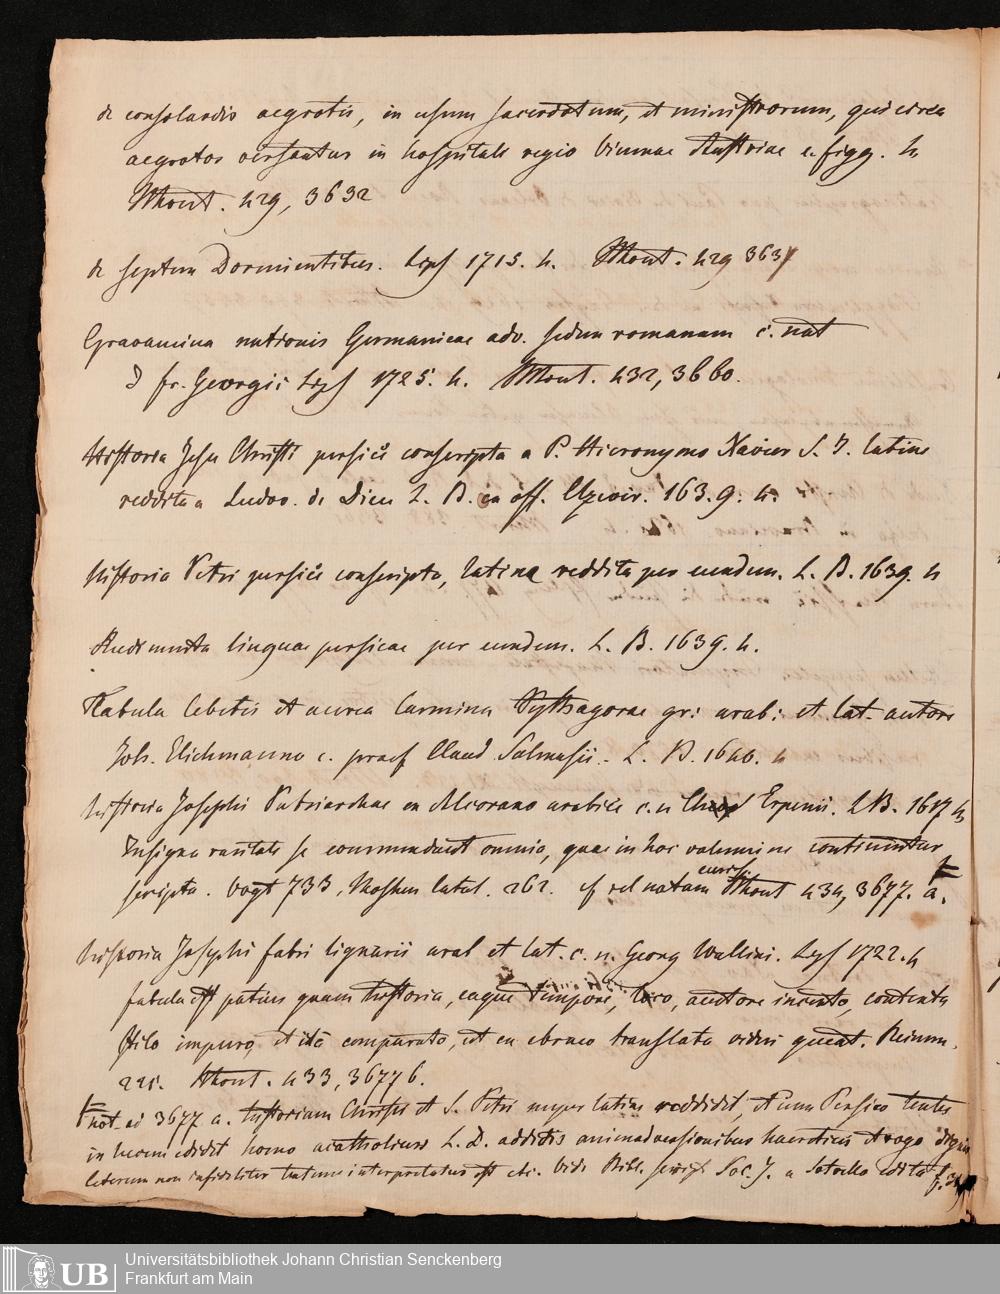 de consolandis aegrotis, in usum sacerdotum, et ministrorum, qui circa
aegrotos versantur in hospitale regio Viennae Austriae c. figg. 4
Mont. 429, 3632
de septem Dormientibus. Lips 1715. 4. Mont. 429 363
Gravamina nationis Germanicae adv. sedem romanam c. not
J fr. Georgii Lips 1725. 4. Mont. 432, 3660.
Historia Jesu Christi persicè conscripta a P. Hieronymo Xavier S. J. latine
reddita a Ludov. de Dieu L. B. ex off. Elzevir. 1639. 4.
Historia Petri persicè conscripta, latine reddita per eundem. L. B. 1639. 4
Rudimenta linguae persicae per eundem. L. B. 1639. 4.
Tabula Cebetis et aurea Carmina Pythagorae gr: arab: et lat. autore
Joh. Elichmanno c. praef Claud Salmasii. L. B. 1640. 4
Historia Josephi Patriarchae ex Alcorano arabice c. n Erpenii. L B. 1617 4
Insigne raritate se commendant omnia, quae in hoc volumine continentur
scripta. Vogt 733, Catal. 262. cf rel notam Mont 434, 3677. a.
Historia Josephi fabri lignarii arab et lat. c. n. Georg Wallini. Lips 1722. 4
fabula est potius quam historia, eaque tempore, loco, autore incerto, contexta
stilo impuro, et ita comparato, ut ex ebraeo translata videri queat. Reimm.
221. Mont. 433, 3677 b.
not. ad 3677 a. historiam Christi et S. Petri nuper latine reddidit, et cum Persico textu
in lucem edidit homo acatholicus L. D. additis animadversionibus haeretico et rogo dignis
ceterum non infideliter textum interpretatus est etc. Vide Bibl. script Soc. J. a Sotvello edita
Universitätsbibliothek Johann Christian Senckenberg
Frankfurt am Main
UB